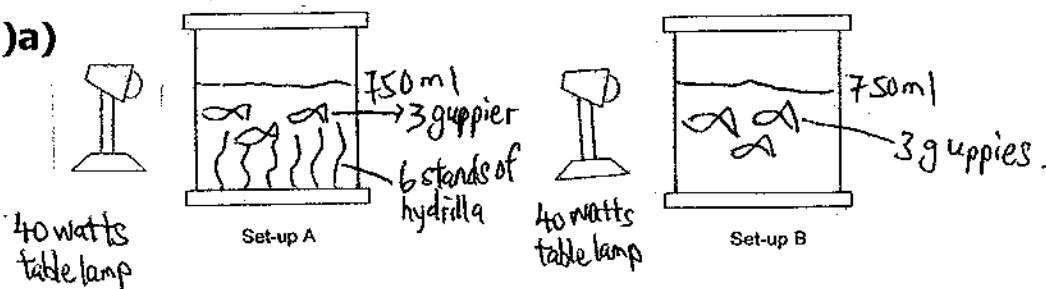 )a)
750ml
3 guppier
6 stands of
hydrilla
40 watts
table lamp
Set-up A
750ml
3 guppies.
40 watts
table lamp
Set-up B